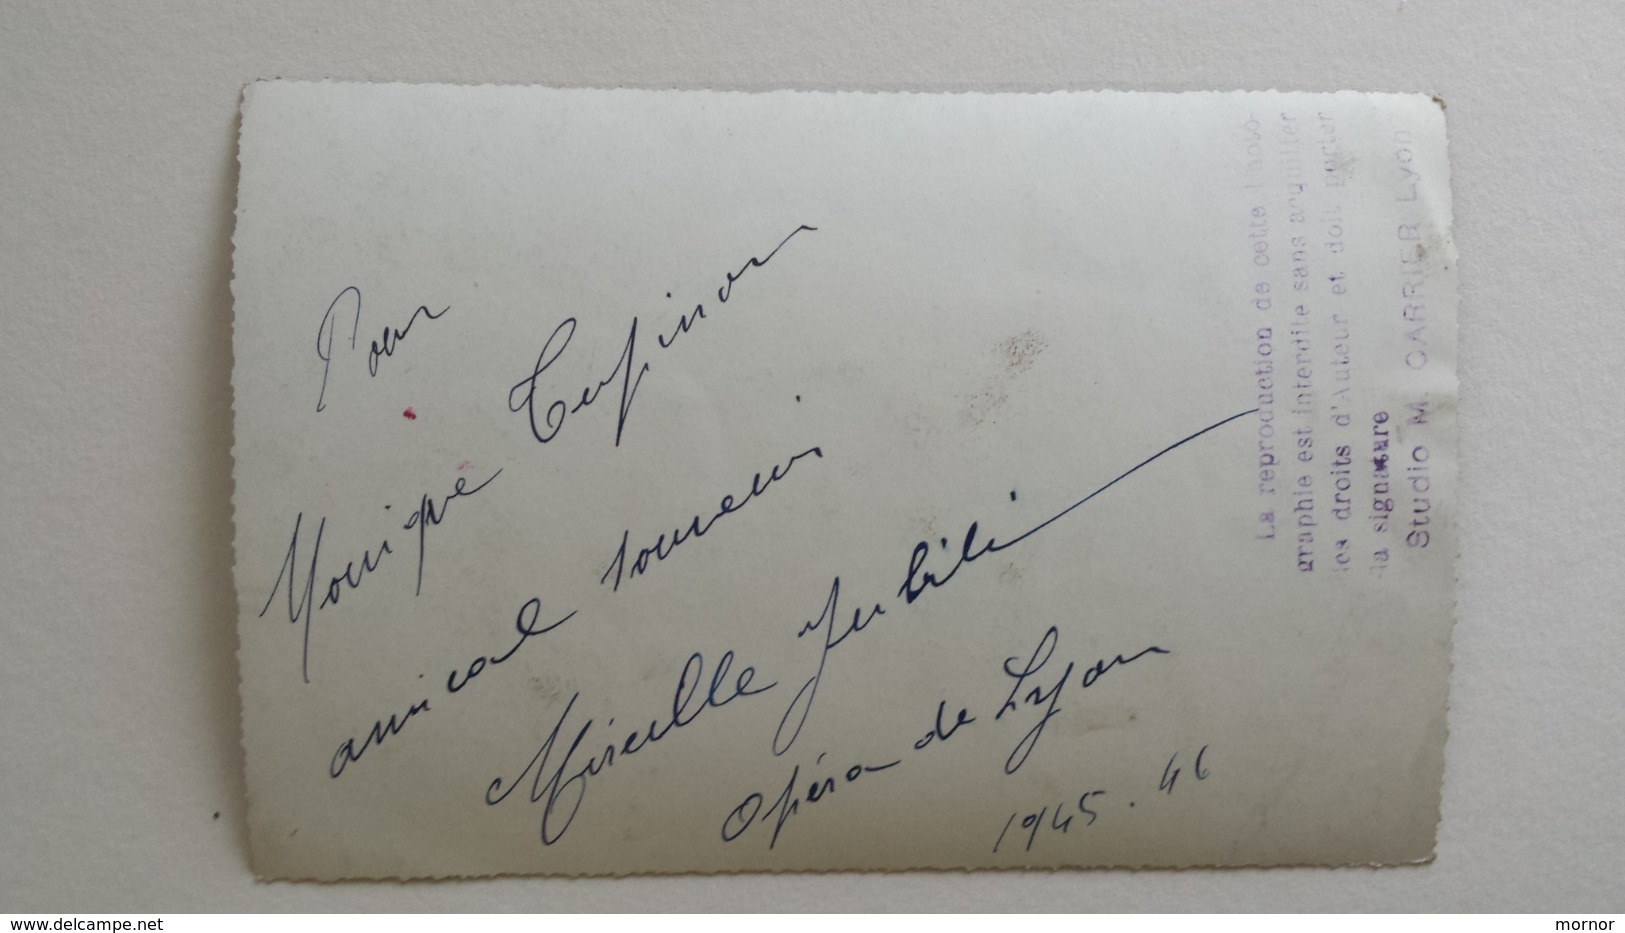 Pour
Monique Tupinon
amical souvenir
Mireille Jubilin
Opéra de Lyon
1945.46
La reproduction de cette Photo-
graphie est interdite sans acquitter
les droits d'Auteur et doit porter
la signature
Studio M. CARRIER Lyon
www.delcampe.net
mornor